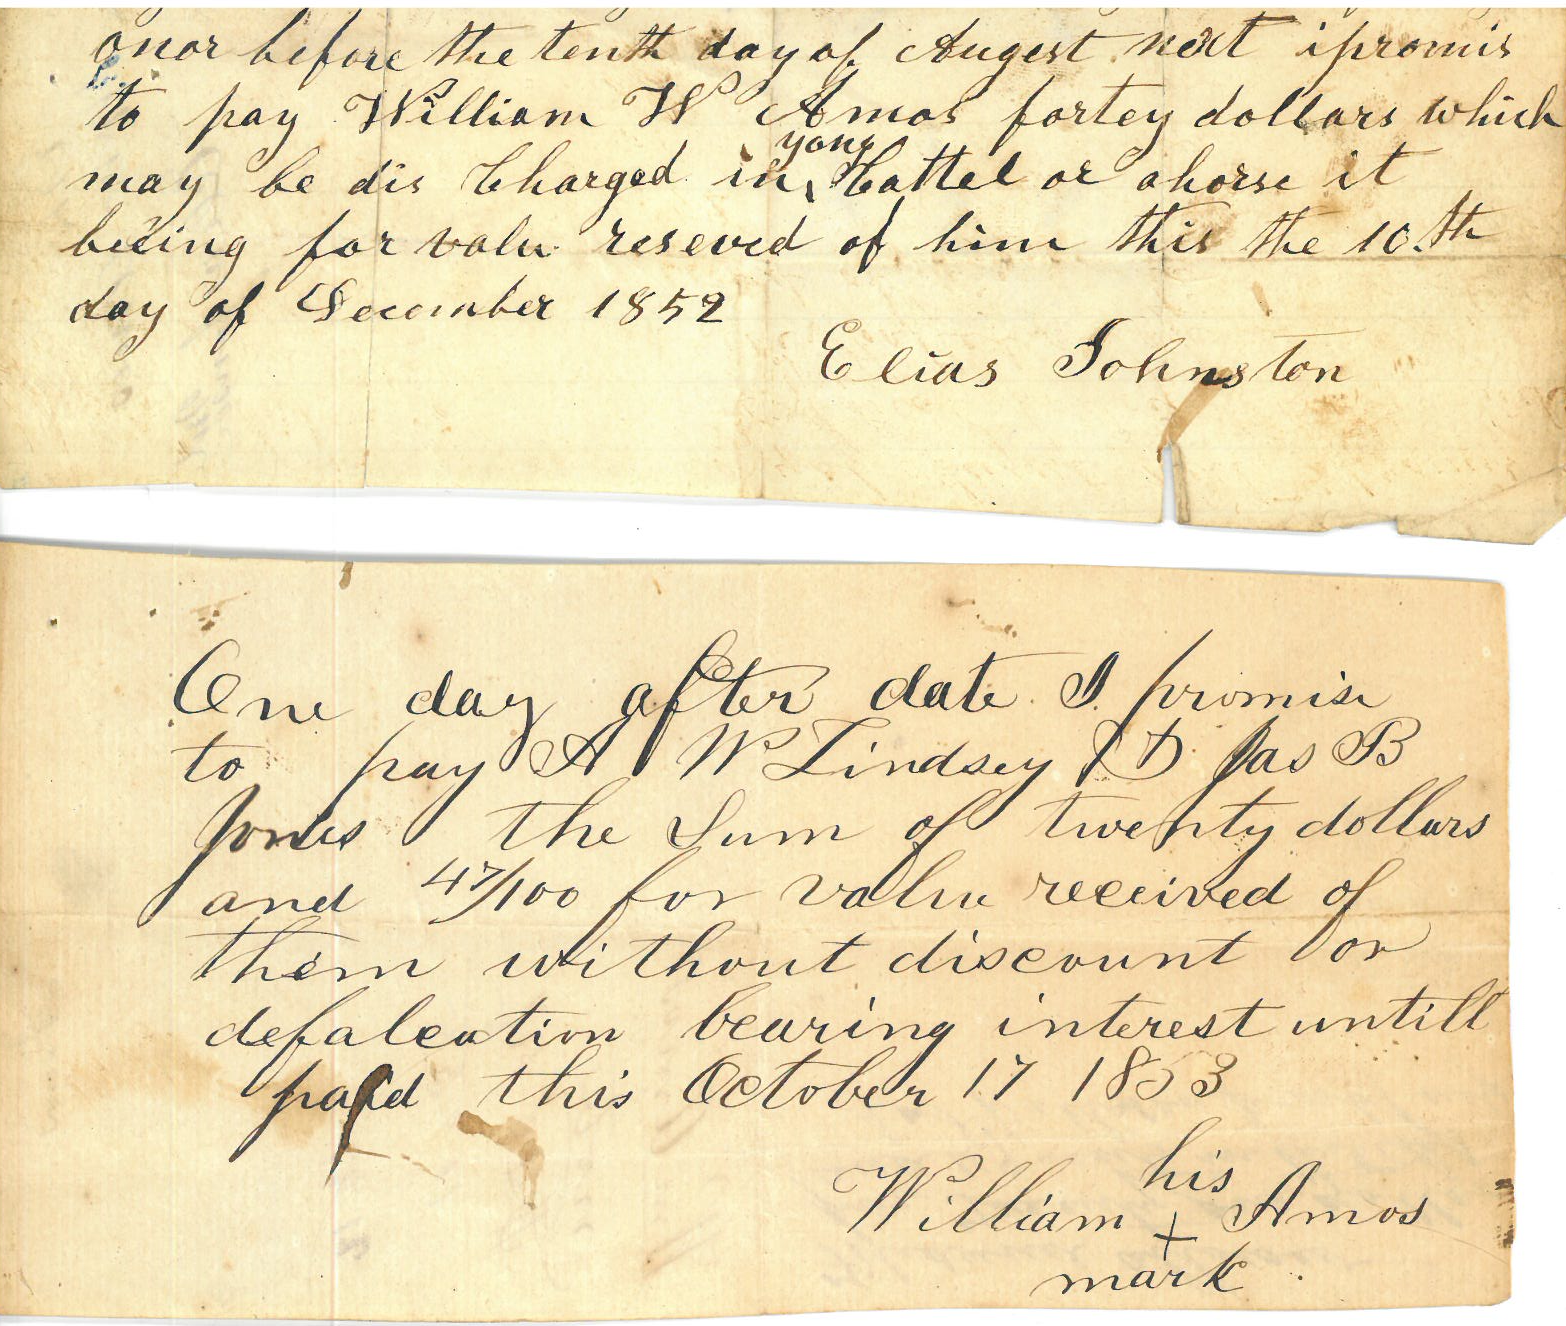 onor before the tenth day of Augest next i promis
to pay William W Amos fortey dollars which
yong
may be dis Charged in ‸ Cattel or ahorse it
beeing for valu reseved of him this the 10.th
day of December 1852
Elias Johnston
One day after date I promise
to pay A W Lindsey & Jas B
Jones the Sum of twenty dollars
and 47/100 for value received of
them without discount or
defalcation bearing interest untill
paid this October 17 1853
his
William + Amos
mark